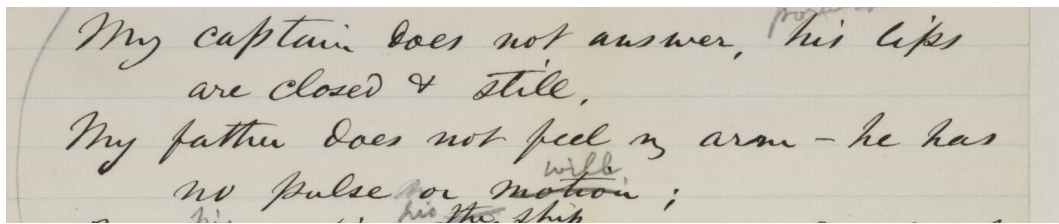 My captain does not answer, his lips
are closed & still,
My father does not feel my arm - he has
will
no pulse or motion ;
his his the ship